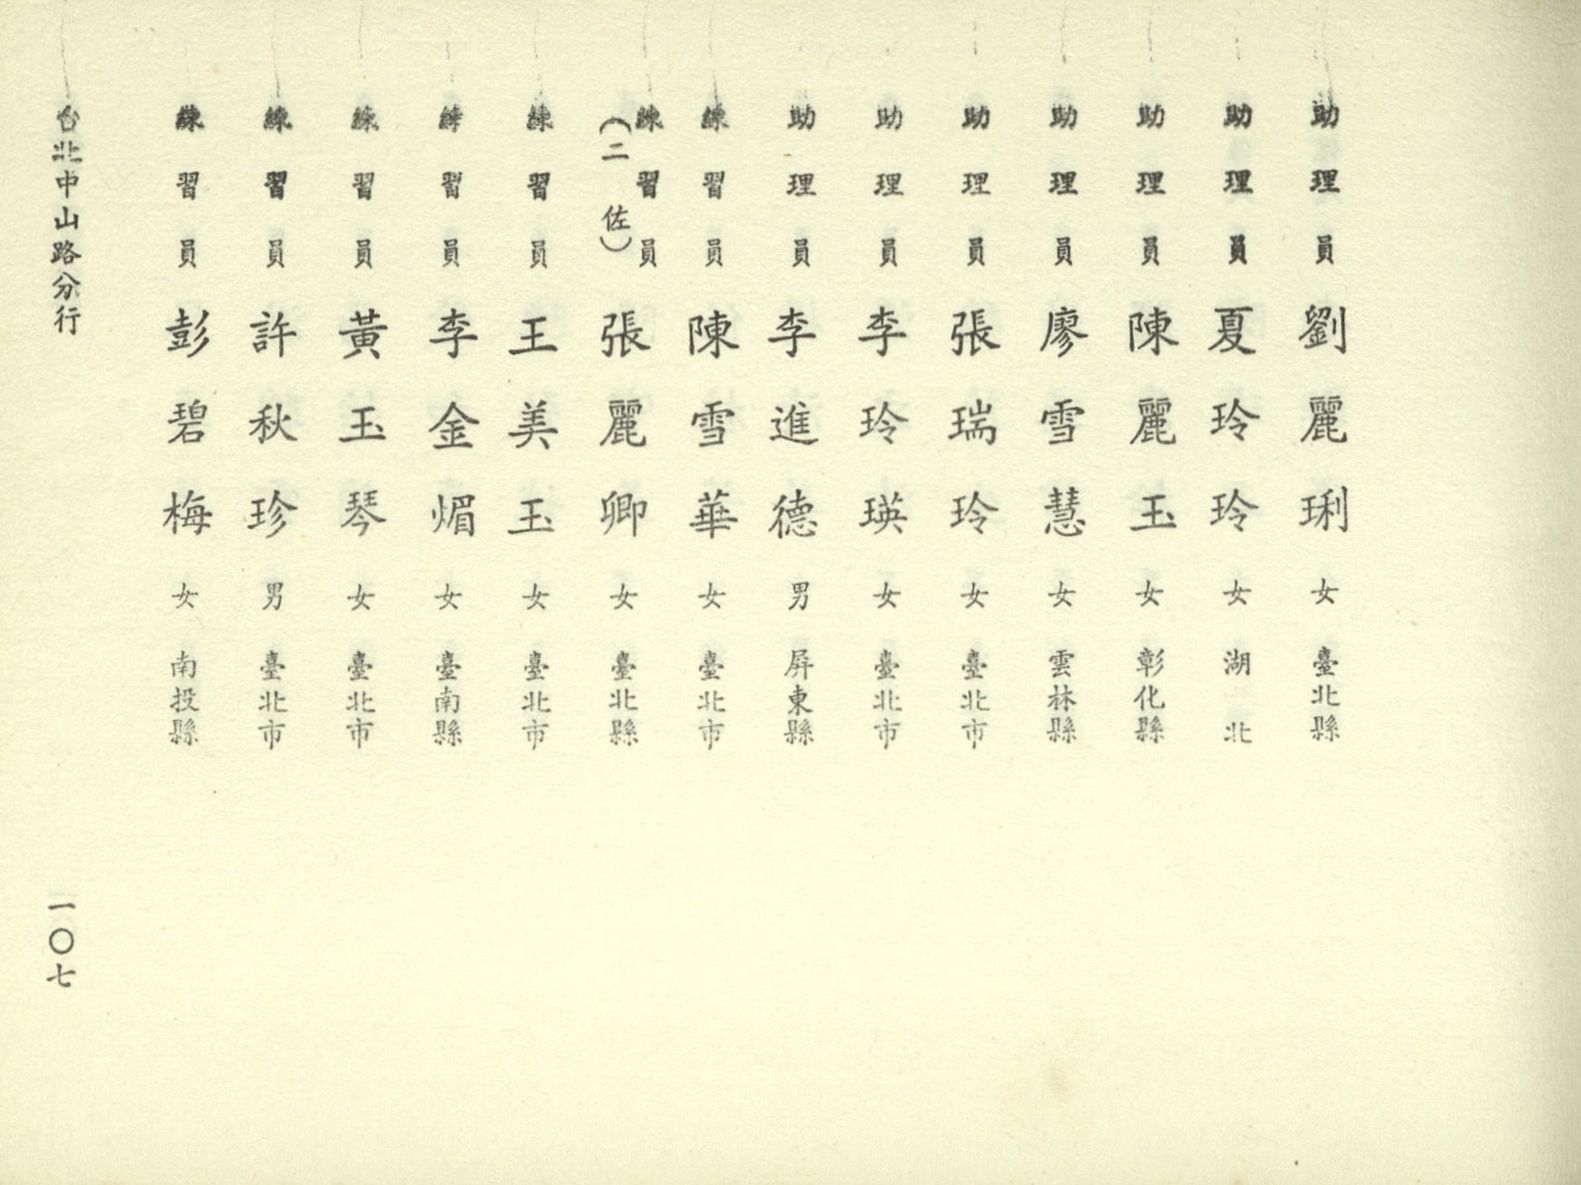 助理員 劉麗琍 女 臺北縣
助理員 夏玲玲 女 湖北
助理員 陳麗玉 女 彰化縣
助理員 廖雪慧 女 雲林縣
助理員 張瑞玲 女 臺北市
助理員 李玲瑛 女 臺北市
助理員 李進德 男 屏東縣
練習員 陳雪華 女 臺北市
練習員
(二佐) 張麗卿 女 臺北縣
練習員 王美玉 女 臺北市
練習員 李金媚 女 臺南縣
練習員 黃玉琴 女 臺北市
練習員 許秋珍 男 臺北市
練習員 彭碧梅 女 南投縣
台北中山路分行
一〇七